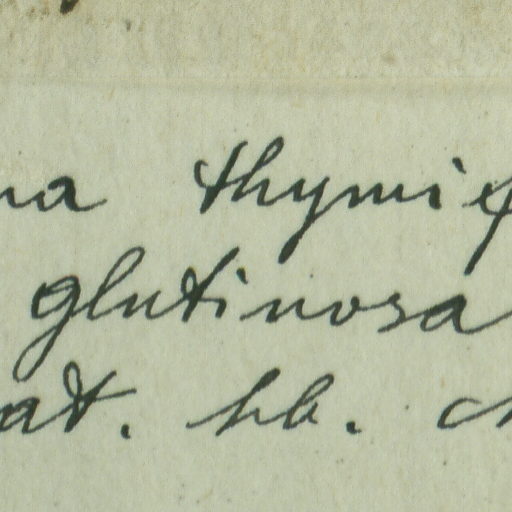 na thymif
glutinosa
at. hb. ch